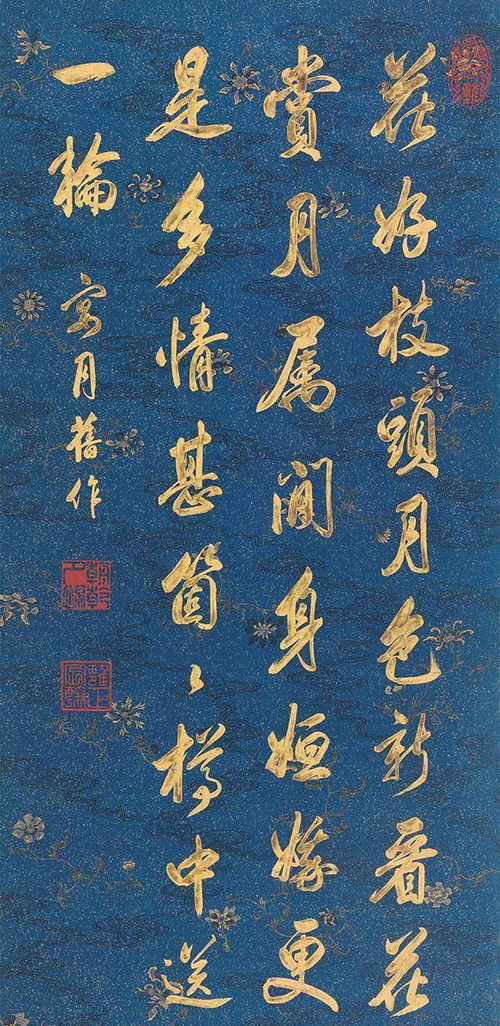 花好枝頭月色新看花
賞月属閒身姮娥更
是多情甚箇〻樽中送
一輪
月舊作
雍正宸翰